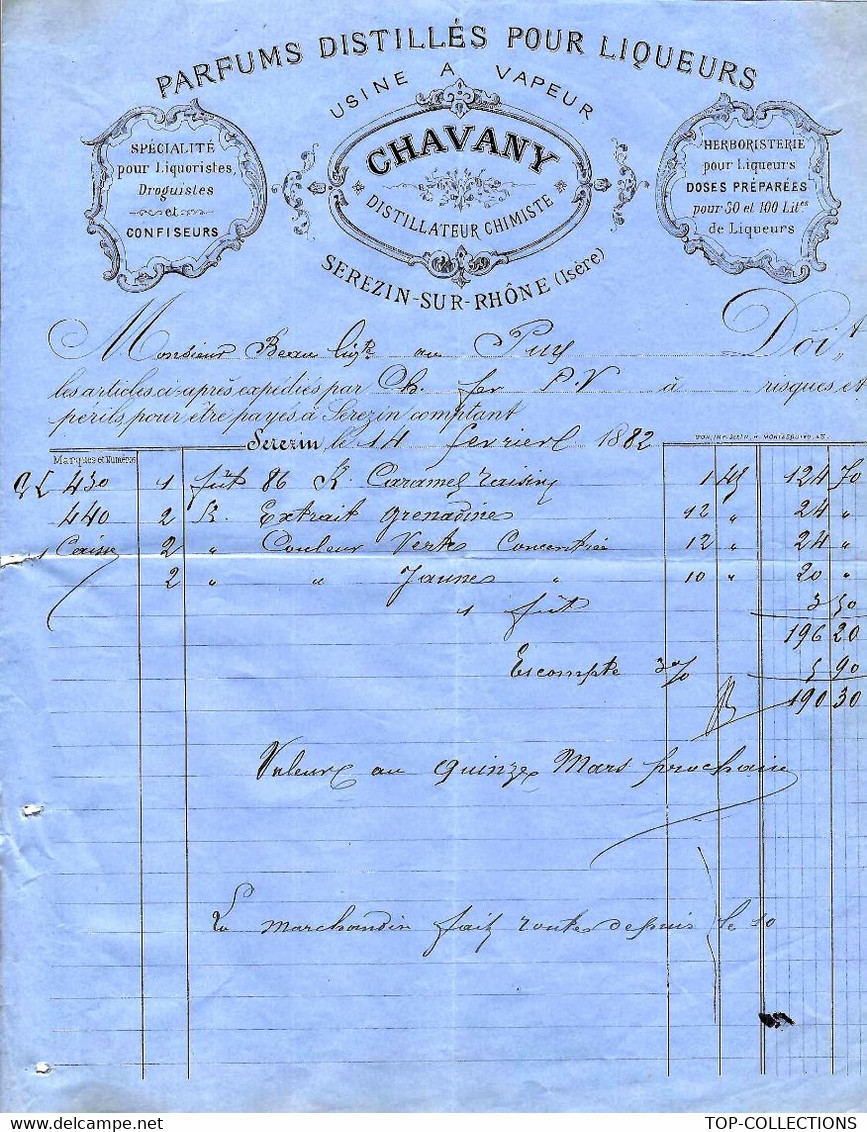 PARFUMS DISTILLÉS POUR LIQUEURS
USINE A VAPEUR
SPÉCIALITÉ
pour Liquoristes,
Droguistes
et
CONFISEURS
CHAVANY
DISTILLATEUR CHIMISTE
SEREZIN-SUR-RHÔNE (Isère)
HERBORISTERIE
pour Liqueurs
DOSES PRÉPARÉES
pour 50 et 100 Lit.es
de Liqueurs
Monsieur Beau au Puy Doit
les articles ci-après expédiés par Ch. fer P.V à risques et
périls, pour être payés à Serezin comptant
Serezin le 14 fevrier 1882
Marques et Numéros
430 1 fût 86 K. Caramel raisin 1 45 124 70
440 2 K. Extrait grenadine 12 " 24 "
1 Caisse 2 " Couleur Verte Concentrée 12 " 24 "
2 " " Jaune " 10 " 20 "
1 fût 3 50
196 20
Escompte 3% 5 90
190 30
Valeur au quinze Mars prochain
La marchandise fait route depuis le 10
TOP-COLLECTIONS